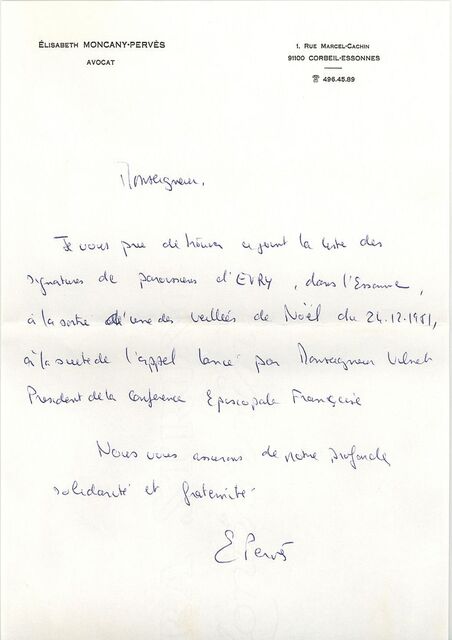 ÉLISABETH MONCANY-PERVÈS
AVOCAT
1, RUE MARCEL-CACHIN
91100 CORBEIL-ESSONNES
☎ 496.45.89
Monseigneur,
Je vous prie de trouver ci joint la liste des
signatures de paroissiens d'EVRY, dans l'Essonne,
à la sortie d'une des veillées de Noël du 24.12.1981,
à la suite de l'appel lancé par Monseigneur Vilnet
President de la Conference Episcopale Française
Nous vous assurons de notre profonde
solidarité et fraternité
E Pervès